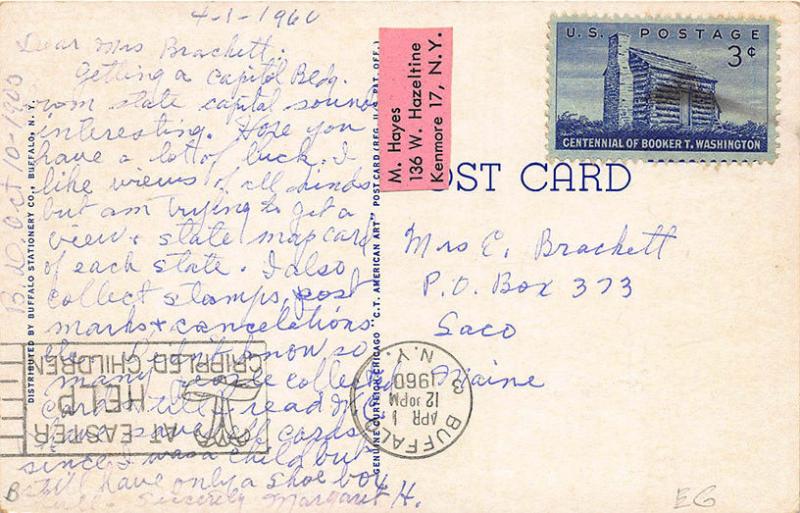 4-1-1960
Dear Mrs Brackett.
Getting a Capitol Bldg.
from state capital sounds
interesting. Hope you
have a lot of luck. I
like views of all kinds
but am trying to get a
view & state map card
of each state. I also
collect stamps, post
marks & cancelations
didn't know so
many people collected
cards till I read
cards
since I was a child but
still have only a shoe box
full. Sincerely Margaret H.
B.D. Oct 10-1903
DISTRIBUTED BY BUFFALO STATIONERY CO., BUFFALO, N. Y.
GENUINE CURTEICH-CHICAGO "C.T. AMERICAN ART" POST CARD (REG. U.S. PAT. OFF.)
M. Hayes
136 W. Hazeltine
Kenmore 17, N.Y.
U.S. POSTAGE
3¢
CENTENNIAL OF BOOKER T. WASHINGTON
POST CARD
Mrs E. Brackett
P.O. Box 373
Saco
Maine
BUFFALO 3
APR 1
12 30PM
1960
N.Y.
AT EASTER
HELP
CRIPPLED CHILDREN
EG